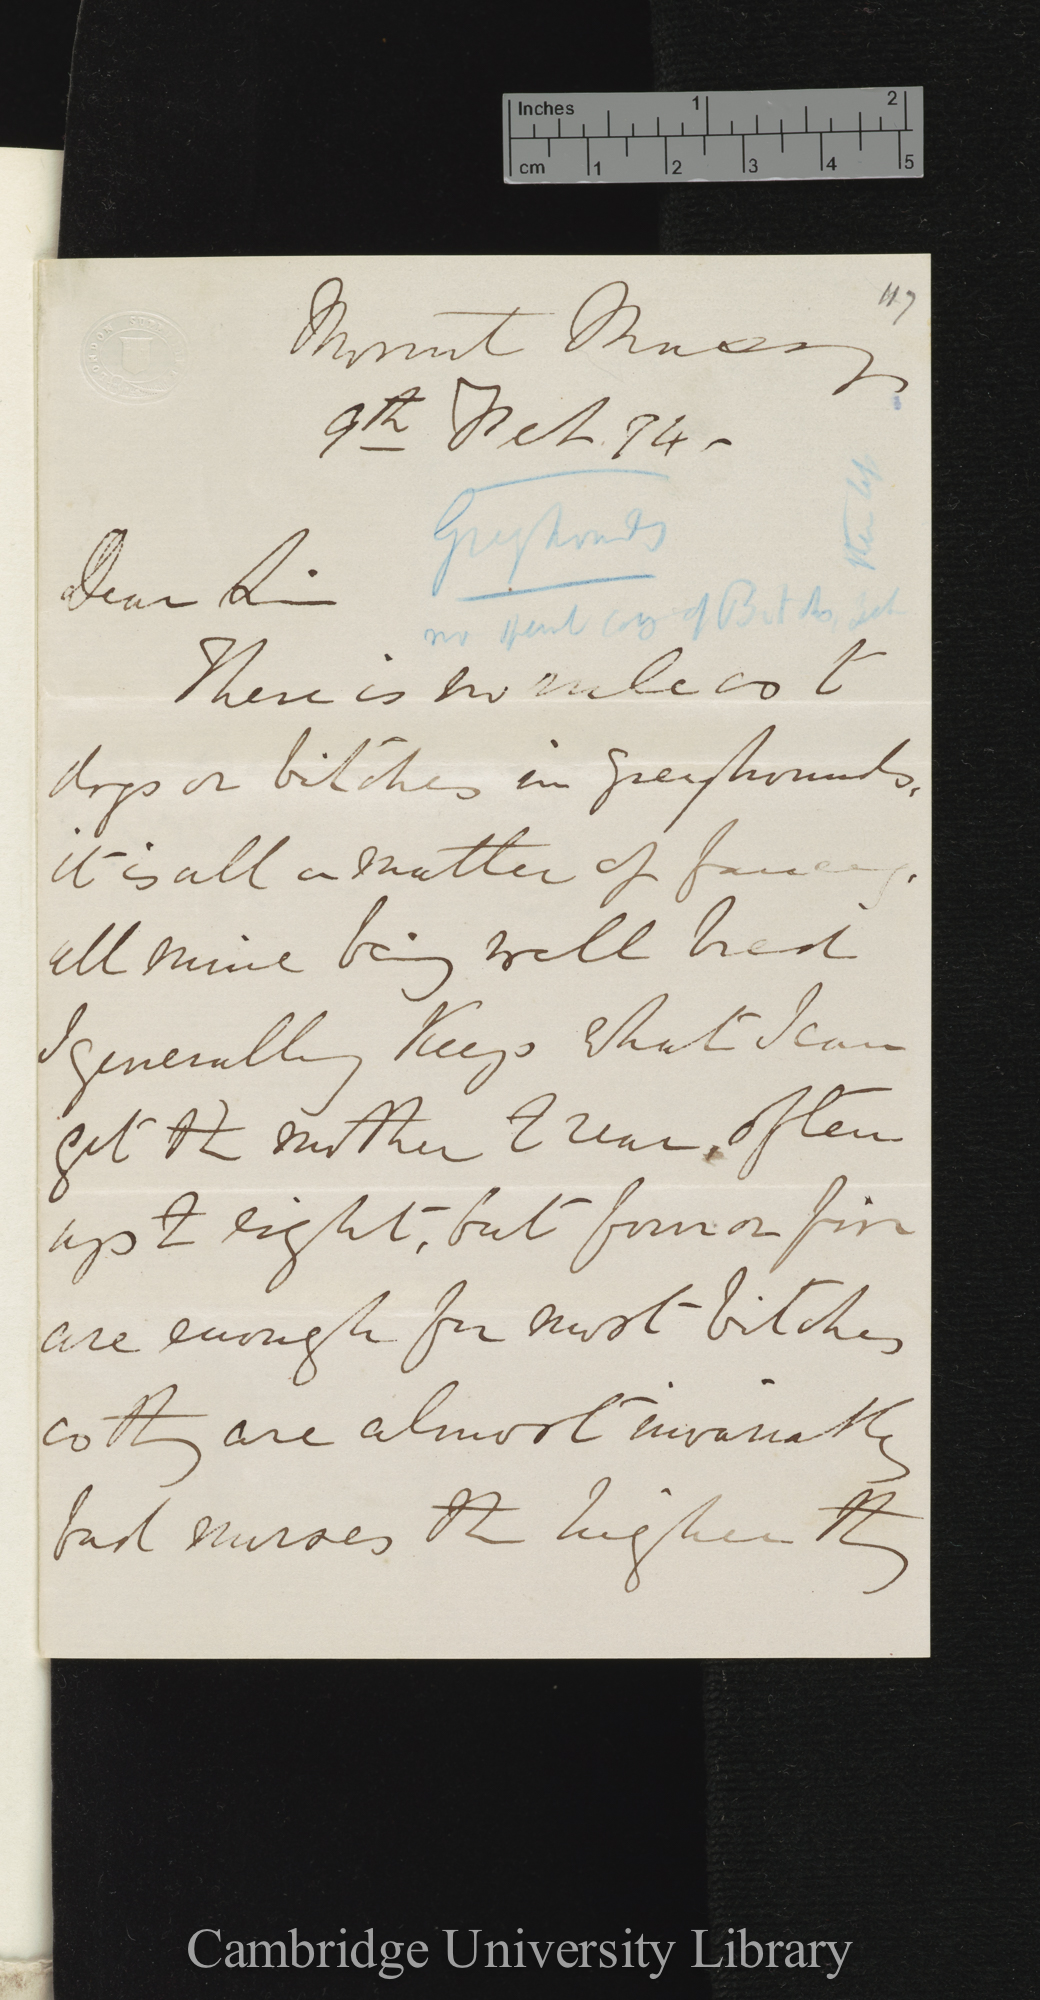 Inches 1 2
cm 1 2 3 4 5
117
Mount Massy
9th Feb. 74 -
Greyhounds
no of Bitches
Dear Sir
There is no rule as to
dogs or bitches in greyhounds,
it is all a matter of fancy.
all mine being well bred
I generally keep what I can
get the mother to rear, often
up to eight, but four or five
are enough for most bitches
as they are almost invariably
bad nurses the higher they
Cambridge University Library